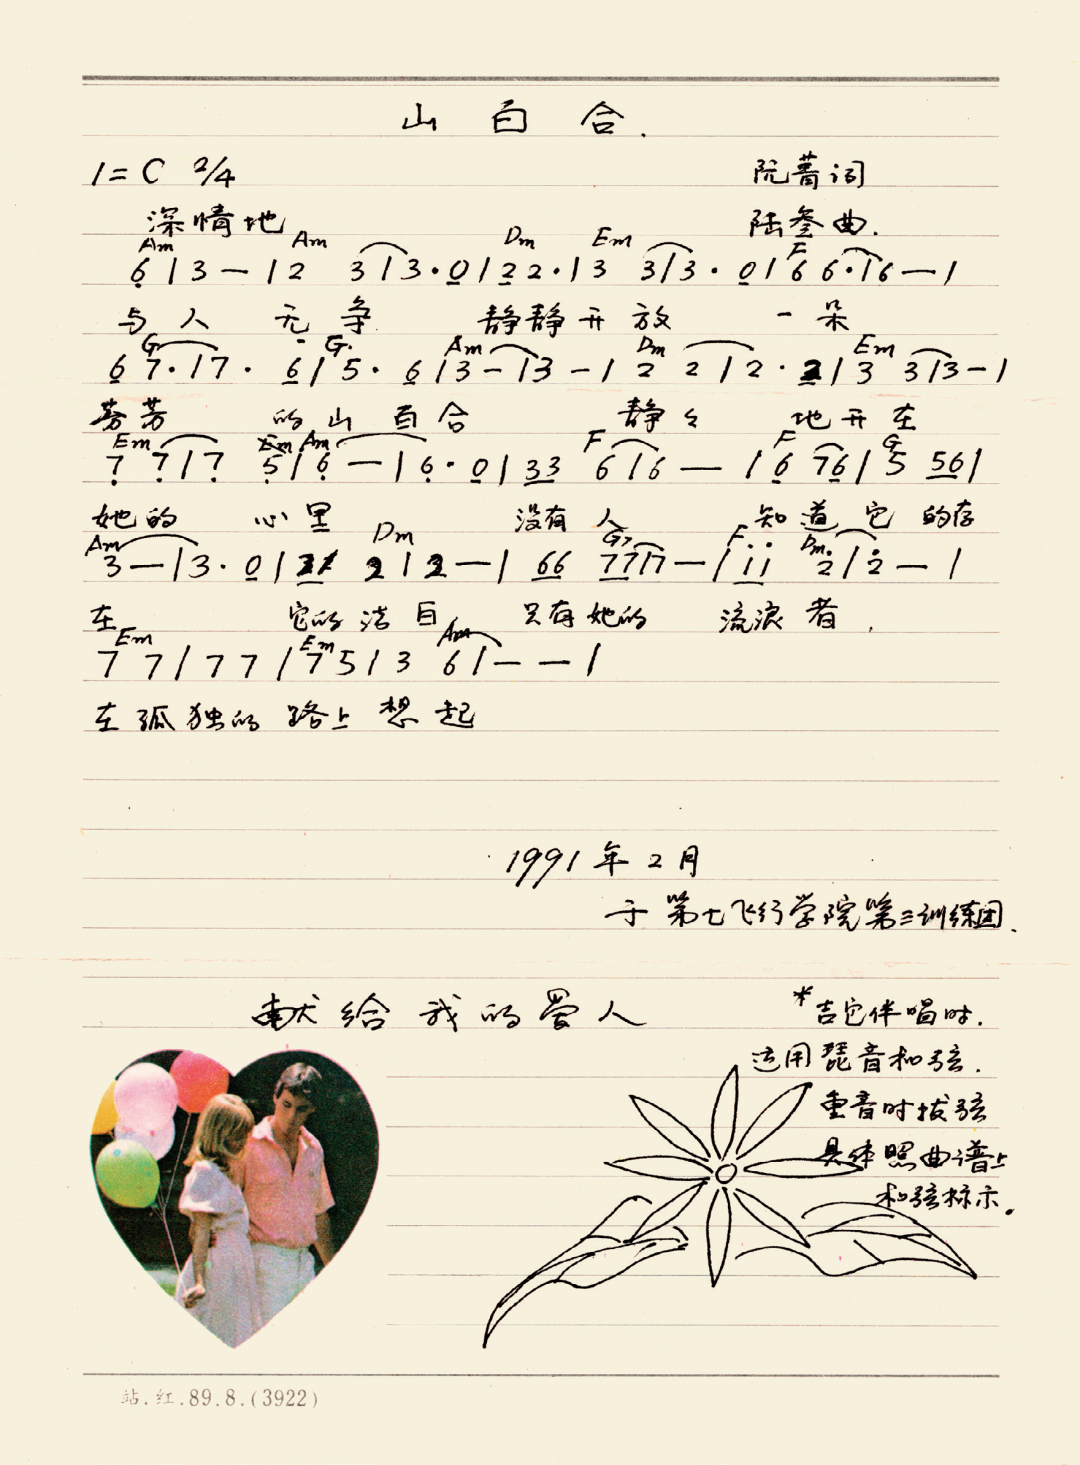 山百合.
1=C 2/4 阮蔷词
深情地 陆叁曲.
Am Am Dm Em F
6 | 3 — | 2 3 | 3 · 0 | 2 2 · | 3 3 | 3 · 0 | 6 6 · | 6 — |
与人 无争 静静开放 一朵
G G Am Dm Em
6 7 · | 7 · 6 | 5 · 6 | 3 — | 3 — | 2 2 | 2 · 2 | 3 3 | 3 — |
芬芳 的山百合 静々 地开在
Em Em Am F F G
7 7 | 7 5 | 6 — | 6 · 0 | 33 6 | 6 — | 6 76 | 5 56 |
她的 心里 没有人 知道它的存
Am Dm G7 F Dm
3 — | 3 · 0 | 2 | 2 — | 66 77 | 7 — | i i 2 | 2 — |
在 它的洁白 只有她的 流浪者,
Em Em Am
7 7 | 7 7 | 7 5 | 3 6 | — — |
在孤独的路上想起
1991年2月
于第七飞行学院第三训练团.
献给我的爱人
*吉它伴唱时.
运用琵音和弦.
重音时拔弦
具体照曲谱上
和弦标示.
站.红.89.8.(3922)